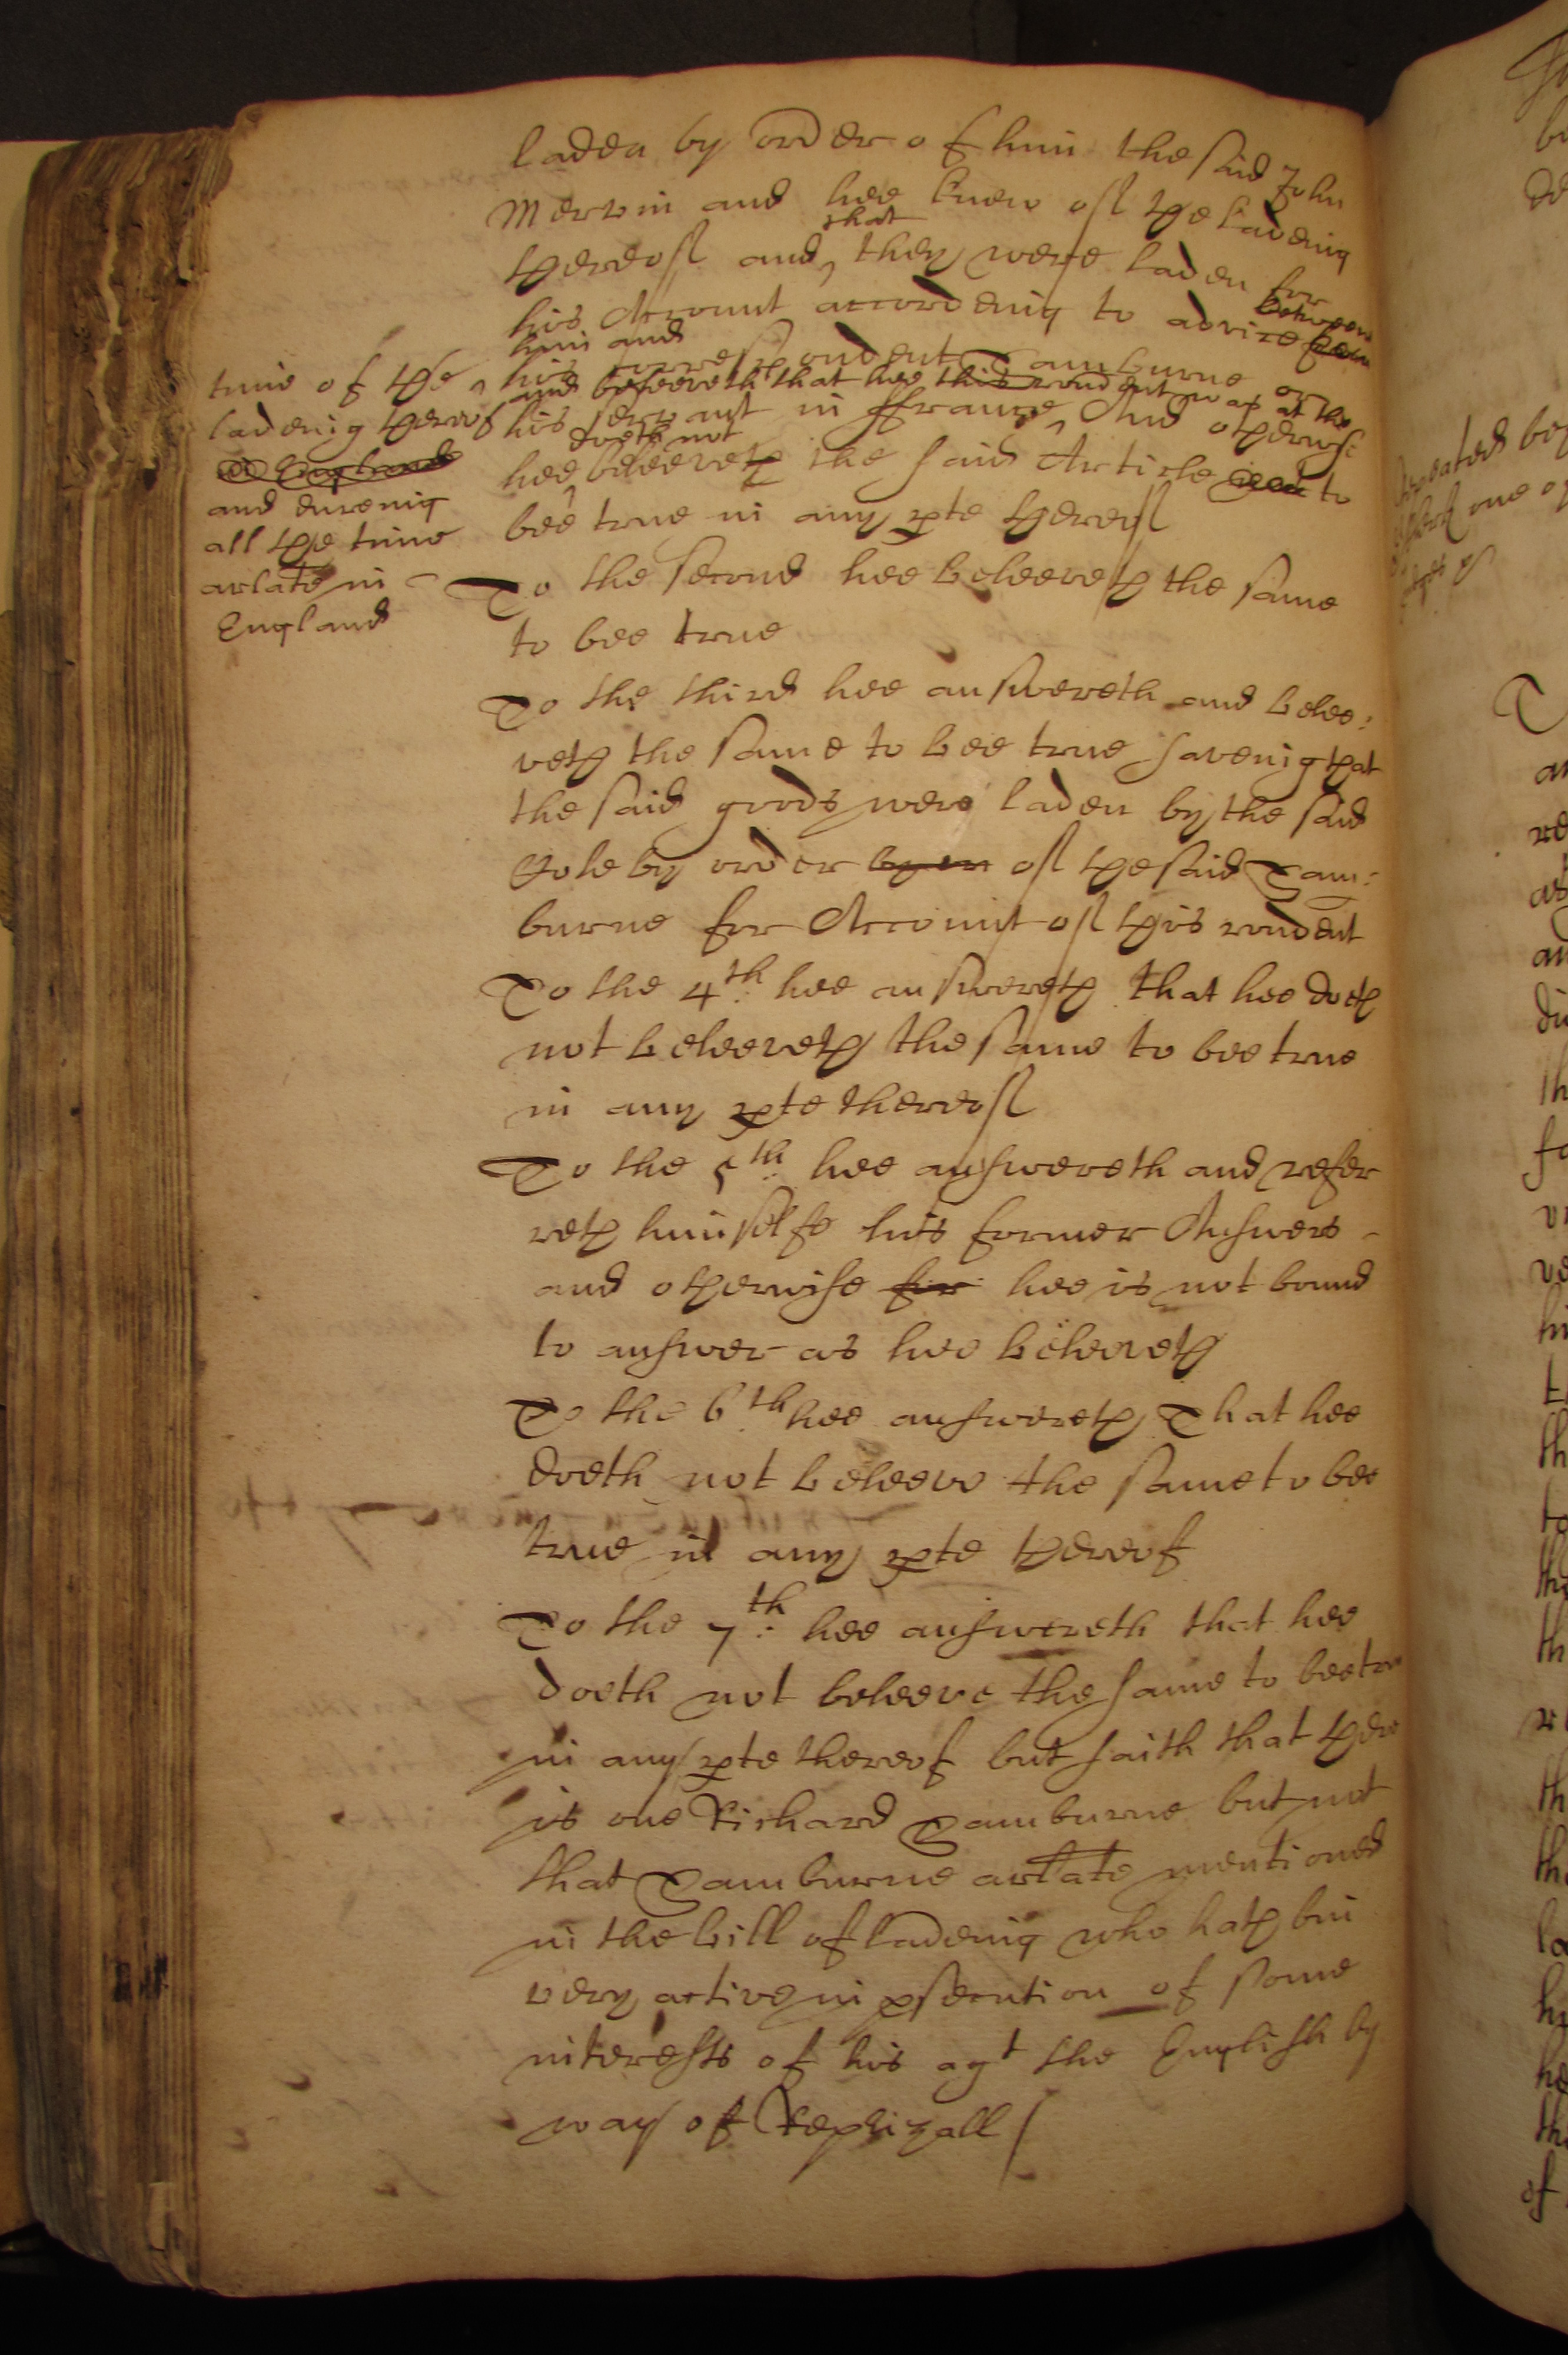 laden by order of him the said John
Mervin and hee knew of the ladeing
that
thereof and they were laden for
his Account accordeing to advice between
him and
his correspondent Tamburne or
and beleeveth that hee this rondent was at the
his servant in ffrance And otherwise
doeth not
hee beleeveth the said Article to
bee true in any pte thereof
time of the
ladeing thereof
in England
and dureing
all the time
arlate in
England
To the second hee beleeveth the same
to bee true
To the third hee answereth and belee:
veth the same to bee true saveing that
the said goods were laden by the said
by order by or of the said Tam:
burne for Account of this rondent
To the 4th: hee answereth that hee doeth
not beleeveth the same to bee true
in any pte thereof
To the 5th: hee answereth and refer
reth himselfe his former Answers
and otherwise for hee is not bound
to answer as hee beleeveth
To the 6th hee answereth That hee
doeth not beleeve the same to bee
true in any pte thereof
To the 7th: hee answereth that hee
doeth not beleeve the same to bee true
in any pte thereof but saith that there
is one Richard Tamburne but not
that Tamburne arlate mentioned
in the bill of ladeing who hath bin
very active in psecution of some
interests of his agt the English by
way of Reprizall